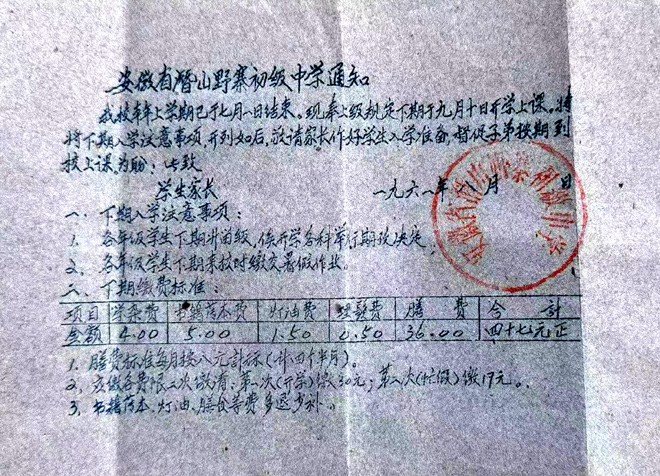 安徽省潛山野寨初级中学通知
我校本年上学期已于七月一日结束。现奉上级规定下期于九月十日开学上课。特
将下期入学注意事项,开列如后,敬请家长作好学生入学准备,督促子弟按期到
校上课为盼,此致
学生家长
一九六一年 八月 日
一、下期入学注意事项:
1. 各年级学生下期升留级,俟开学各科举行期考决定。
2. 各年级学生下期来校时缴交暑假作业。
二、下期缴费标准:
项目 学杂费 书籍簿本费 灯油费 理髮费 膳 费 合 计
金额 4.00 5.00 1.50 0.50 36.00 四十七元正
1. 膳费标准每月按八元計标(计四个半月)。
2. 应缴各费限二次缴清:第一次(开学)缴30元;第二次(忙假)缴17元。
3. 书籍簿本、灯油、膳食等费多退少补。